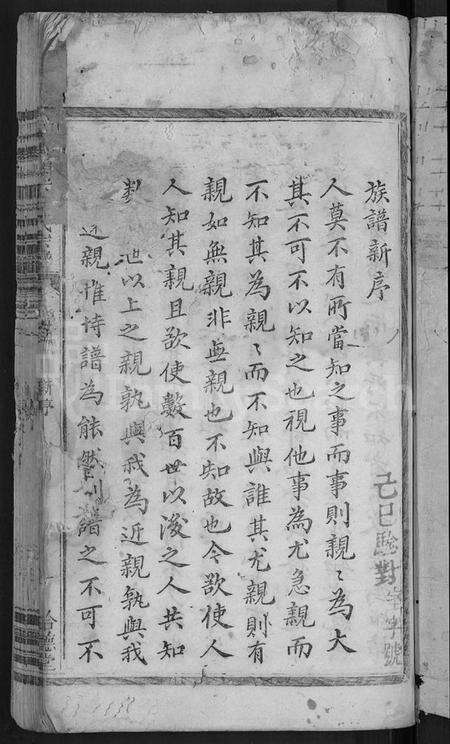 族譜新序
人莫不有所當知之事而事則親〻為大
其不可不以知之也視他事為尤急親而
不知其為親〻而不知與誰其尤親則有
親如無親非無親也不知故也今欲使人
人知其親且欲使數百世以後之人共知
世以上之親孰與我為近親孰與我
近親惟恃譜為能然則譜之不可不
己巳驗對字號